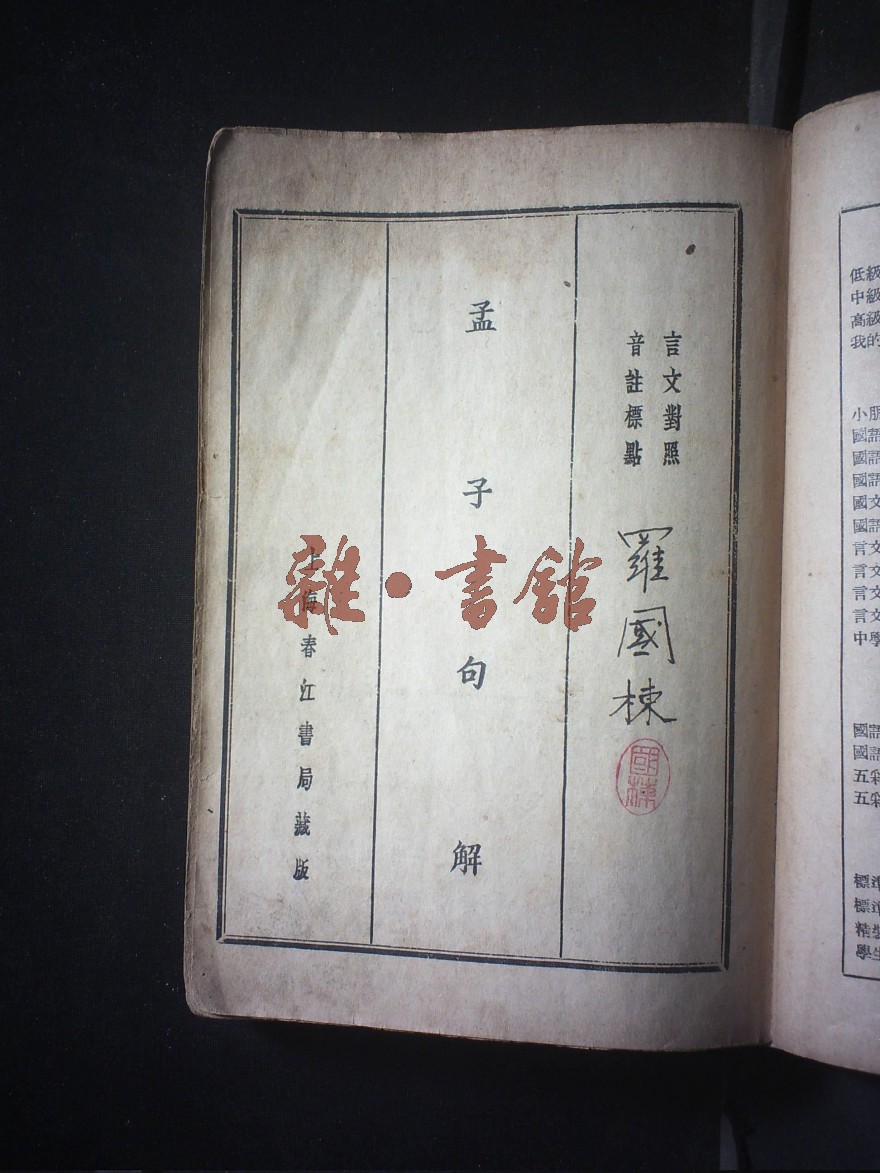 言文對照
音註標點
羅國棟
國棟
孟子句解
上海春江書局藏版
雜•書館
低級
中級
高級
我的
小朋
國語
國語
國語
國文
國語
言文
言文
言文
言文
中學
國語
國語
五彩
五彩
標準
標準
精裝
學生